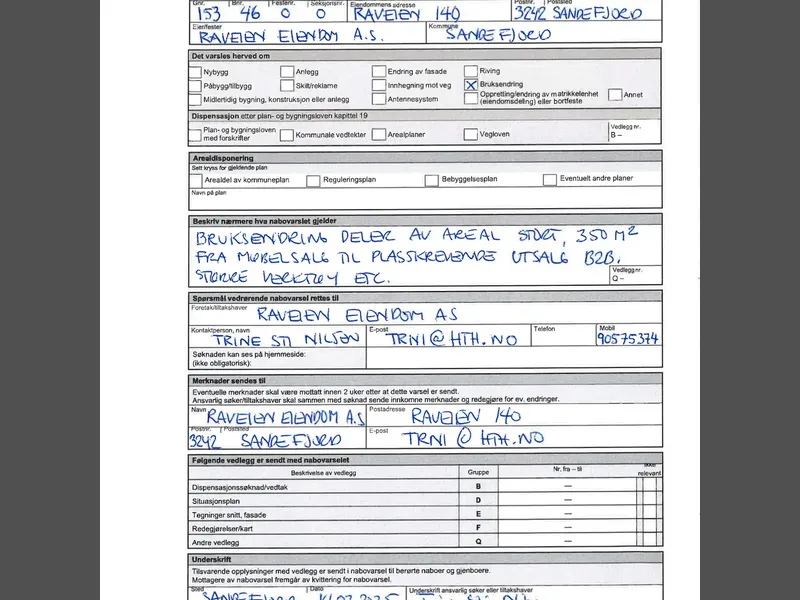 Gnr. Bnr. Festenr. Seksjonsnr. Eiendommens adresse Postnr. Poststed
153 46 0 0 RAVEIEN 140 3242 SANDEFJORD
Eier/fester Kommune
RAVEIEN EIENDOM A.S. SANDEFJORD
Det varsles herved om
Nybygg Anlegg Endring av fasade Riving
Påbygg/tilbygg Skilt/reklame Innhegning mot veg X Bruksendring
Midlertidig bygning, konstruksjon eller anlegg Antennesystem Oppretting/endring av matrikkelenhet (eiendomsdeling) eller bortfeste Annet
Dispensasjon etter plan- og bygningsloven kapittel 19
Plan- og bygningsloven med forskrifter Kommunale vedtekter Arealplaner Vegloven Vedlegg nr. B –
Arealdisponering
Sett kryss for gjeldende plan
Arealdel av kommuneplan Reguleringsplan Bebyggelsesplan Eventuelt andre planer
Navn på plan
Beskriv nærmere hva nabovarslet gjelder
BRUKSENDRING DELER AV AREAL STORT, 350 M2
FRA MØBELSALG TIL PLASSKREVENDE UTSALG B2B,
STØRRE VERKTØY ETC.
Vedlegg nr.
Q –
Spørsmål vedrørende nabovarsel rettes til
Foretak/tiltakshaver
RAVEIEN EIENDOM AS
Kontaktperson, navn E-post Telefon Mobil
TRINE STI NILSEN TRNI@HTH.NO 90575374
Søknaden kan ses på hjemmeside:
(ikke obligatorisk):
Merknader sendes til
Eventuelle merknader skal være mottatt innen 2 uker etter at dette varsel er sendt.
Ansvarlig søker/tiltakshaver skal sammen med søknad sende innkomne merknader og redegjøre for ev. endringer.
Navn Postadresse
RAVEIEN EIENDOM A.S RAVEIEN 140
Postnr. Poststed E-post
3242 SANDEFJORD TRNI@HTH.NO
Følgende vedlegg er sendt med nabovarselet
Beskrivelse av vedlegg Gruppe Nr. fra – til ikke relevant
Dispensasjonssøknad/vedtak B –
Situasjonsplan D –
Tegninger snitt, fasade E –
Redegjørelser/kart F –
Andre vedlegg Q –
Underskrift
Tilsvarende opplysninger med vedlegg er sendt i nabovarsel til berørte naboer og gjenboere.
Mottagere av nabovarsel fremgår av kvittering for nabovarsel.
Sted Dato Underskrift ansvarlig søker eller tiltakshaver
SANDEFJORD